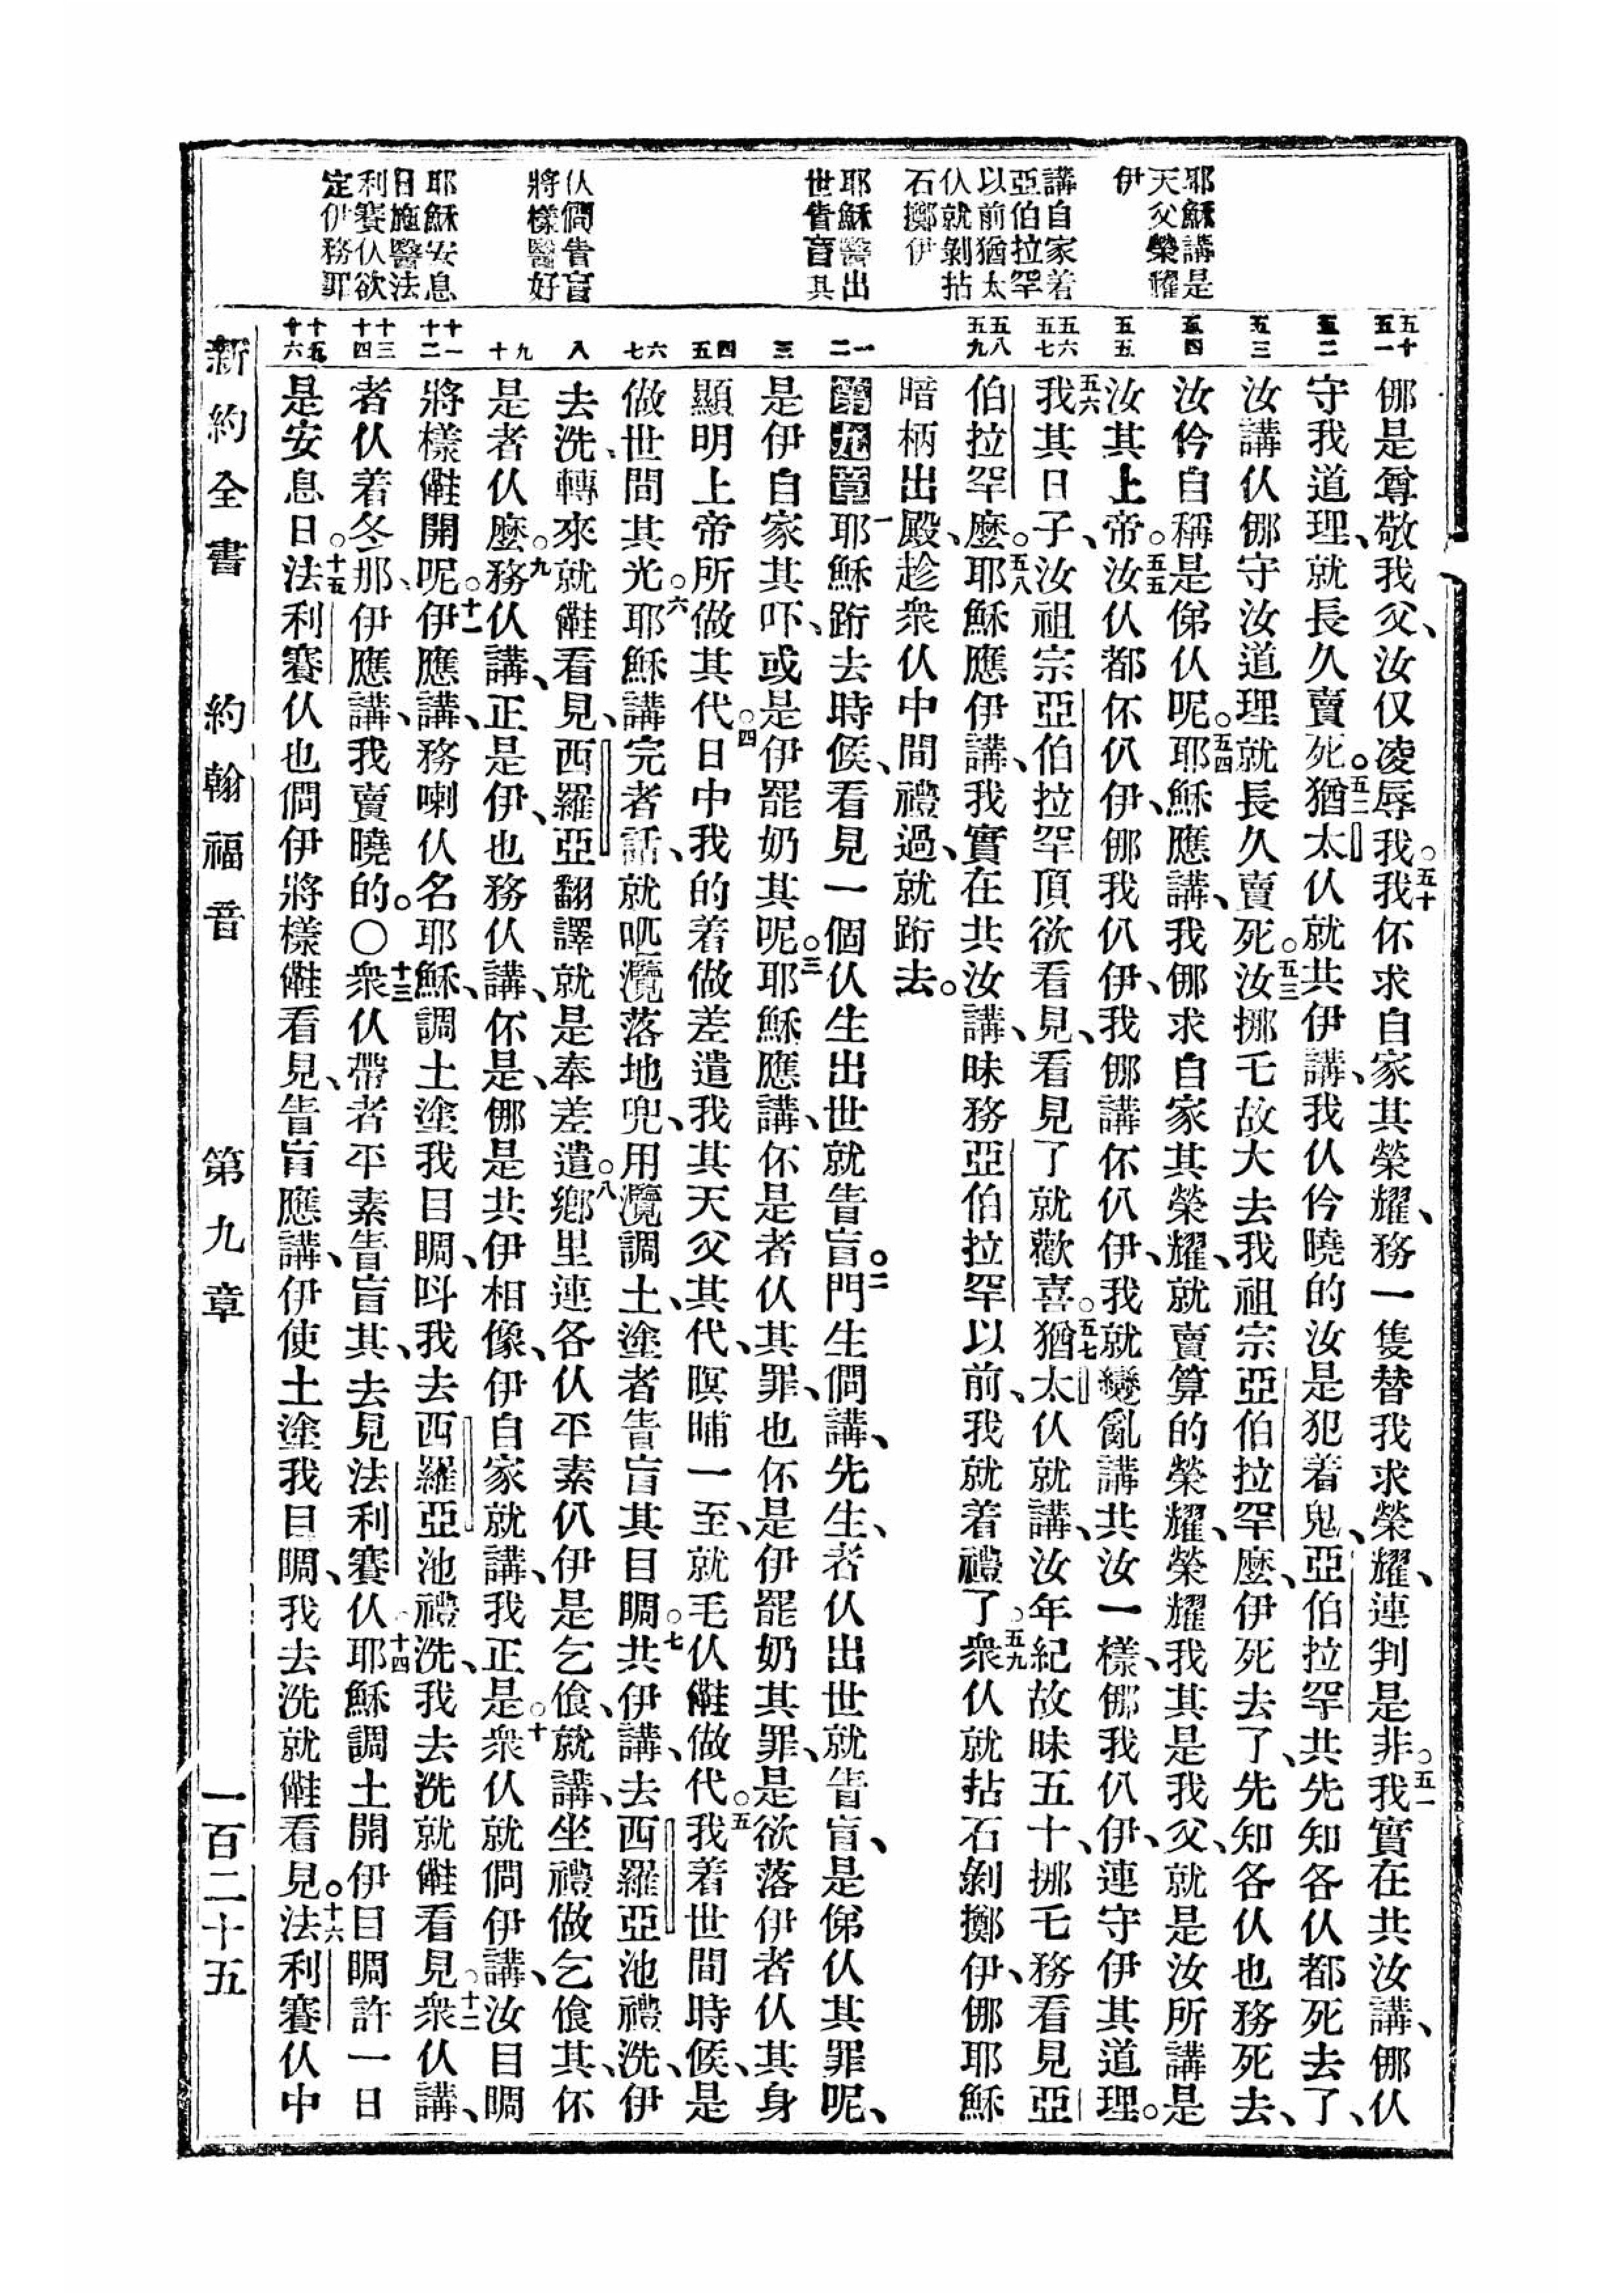 耶穌講是
天父榮耀
伊
講自家着
亞伯拉罕
以前猶太
仈就剝拈
石擲伊
耶穌醫出
世眚盲其
仈僩眚盲
將樣醫好
耶穌安息
日施醫法
利賽仈欲
定伊務罪
五十
五一
五二
五三
五四
五五
五六
五七
五八
五九
一
二
三
四
五
六
七
八
九
十
十一
十二
十三
十四
十五
十六
㑚是尊敬我父、汝仅凌辱我。五十我伓求自家其榮耀、務一隻替我求榮耀、連判是非。五一我實在共汝講、㑚仈
守我道理、就長久賣死。五二猶太仈就共伊講、我仈仱曉的汝是犯着鬼、亞伯拉罕共先知各仈都死去了、
汝講仈㑚守汝道理就長久賣死。五三汝挪乇故大去我祖宗亞伯拉罕麽、伊死去了、先知各仈也務死去、
汝仱自稱是俤仈呢。五四耶穌應講、我㑚求自家其榮耀、就賣算的榮耀、榮耀我其是我父、就是汝所講是
汝其上帝。五五汝仈都伓仈伊、㑚我仈伊、我㑚講伓仈伊、我就變亂講共汝一樣、㑚我仈伊、連守伊其道理。
五六我其日子、汝祖宗亞伯拉罕頂欲看見、看見了就歡喜。五七猶太仈就講、汝年紀故昧五十、挪乇務看見亞
伯拉罕麽。五八耶穌應伊講、我實在共汝講、昧務亞伯拉罕以前、我就着禮了。五九衆仈就拈石剝擲伊、㑚耶穌
暗柄出殿、趁衆仈中間禮過、就跕去。
第九章一耶穌跕去時候、看見一個仈生出世就眚盲。二門生僩講、先生、者仈出世就眚盲、是俤仈其罪呢、
是伊自家其吓、或是伊罷奶其呢。三耶穌應講、伓是者仈其罪、也伓是伊罷奶其罪、是欲落伊者仈其身
顯明上帝所做其代。四日中我的着做差遣我其天父其代、暝晡一至、就毛仈𡅏做代。五我着世間時候、是
做世間其光。六耶穌講完者話、就吔瀾落地兜、用瀾調土、塗者眚盲其目睭。七共伊講、去西羅亞池禮洗、伊
去洗、轉來就𡅏看見、西羅亞翻譯就是奉差遣。八鄉里連各仈平素仈伊是乞飡、就講、坐禮做乞飡其、伓
是者仈麽。九務仈講、正是伊、也務仈講、伓是、㑚是共伊相像、伊自家就講、我正是。十衆仈就僩伊講、汝目睭
將樣𡅏開呢。十一伊應講、務喇仈名耶穌、調土塗我目睭、呌我去西羅亞池禮洗、我去洗就𡅏看見。十二衆仈講、
者仈着冬那、伊應講、我賣曉的。〇十三衆仈帶者平素眚盲其、去見法利賽仈。十四耶穌調土開伊目睭許一日
是安息日。十五法利賽仈也僩伊將樣𡅏看見、眚盲應講、伊使土塗我目睭、我去洗就𡅏看見。十六法利賽仈中
新約全書　約翰福音　第九章　一百二十五